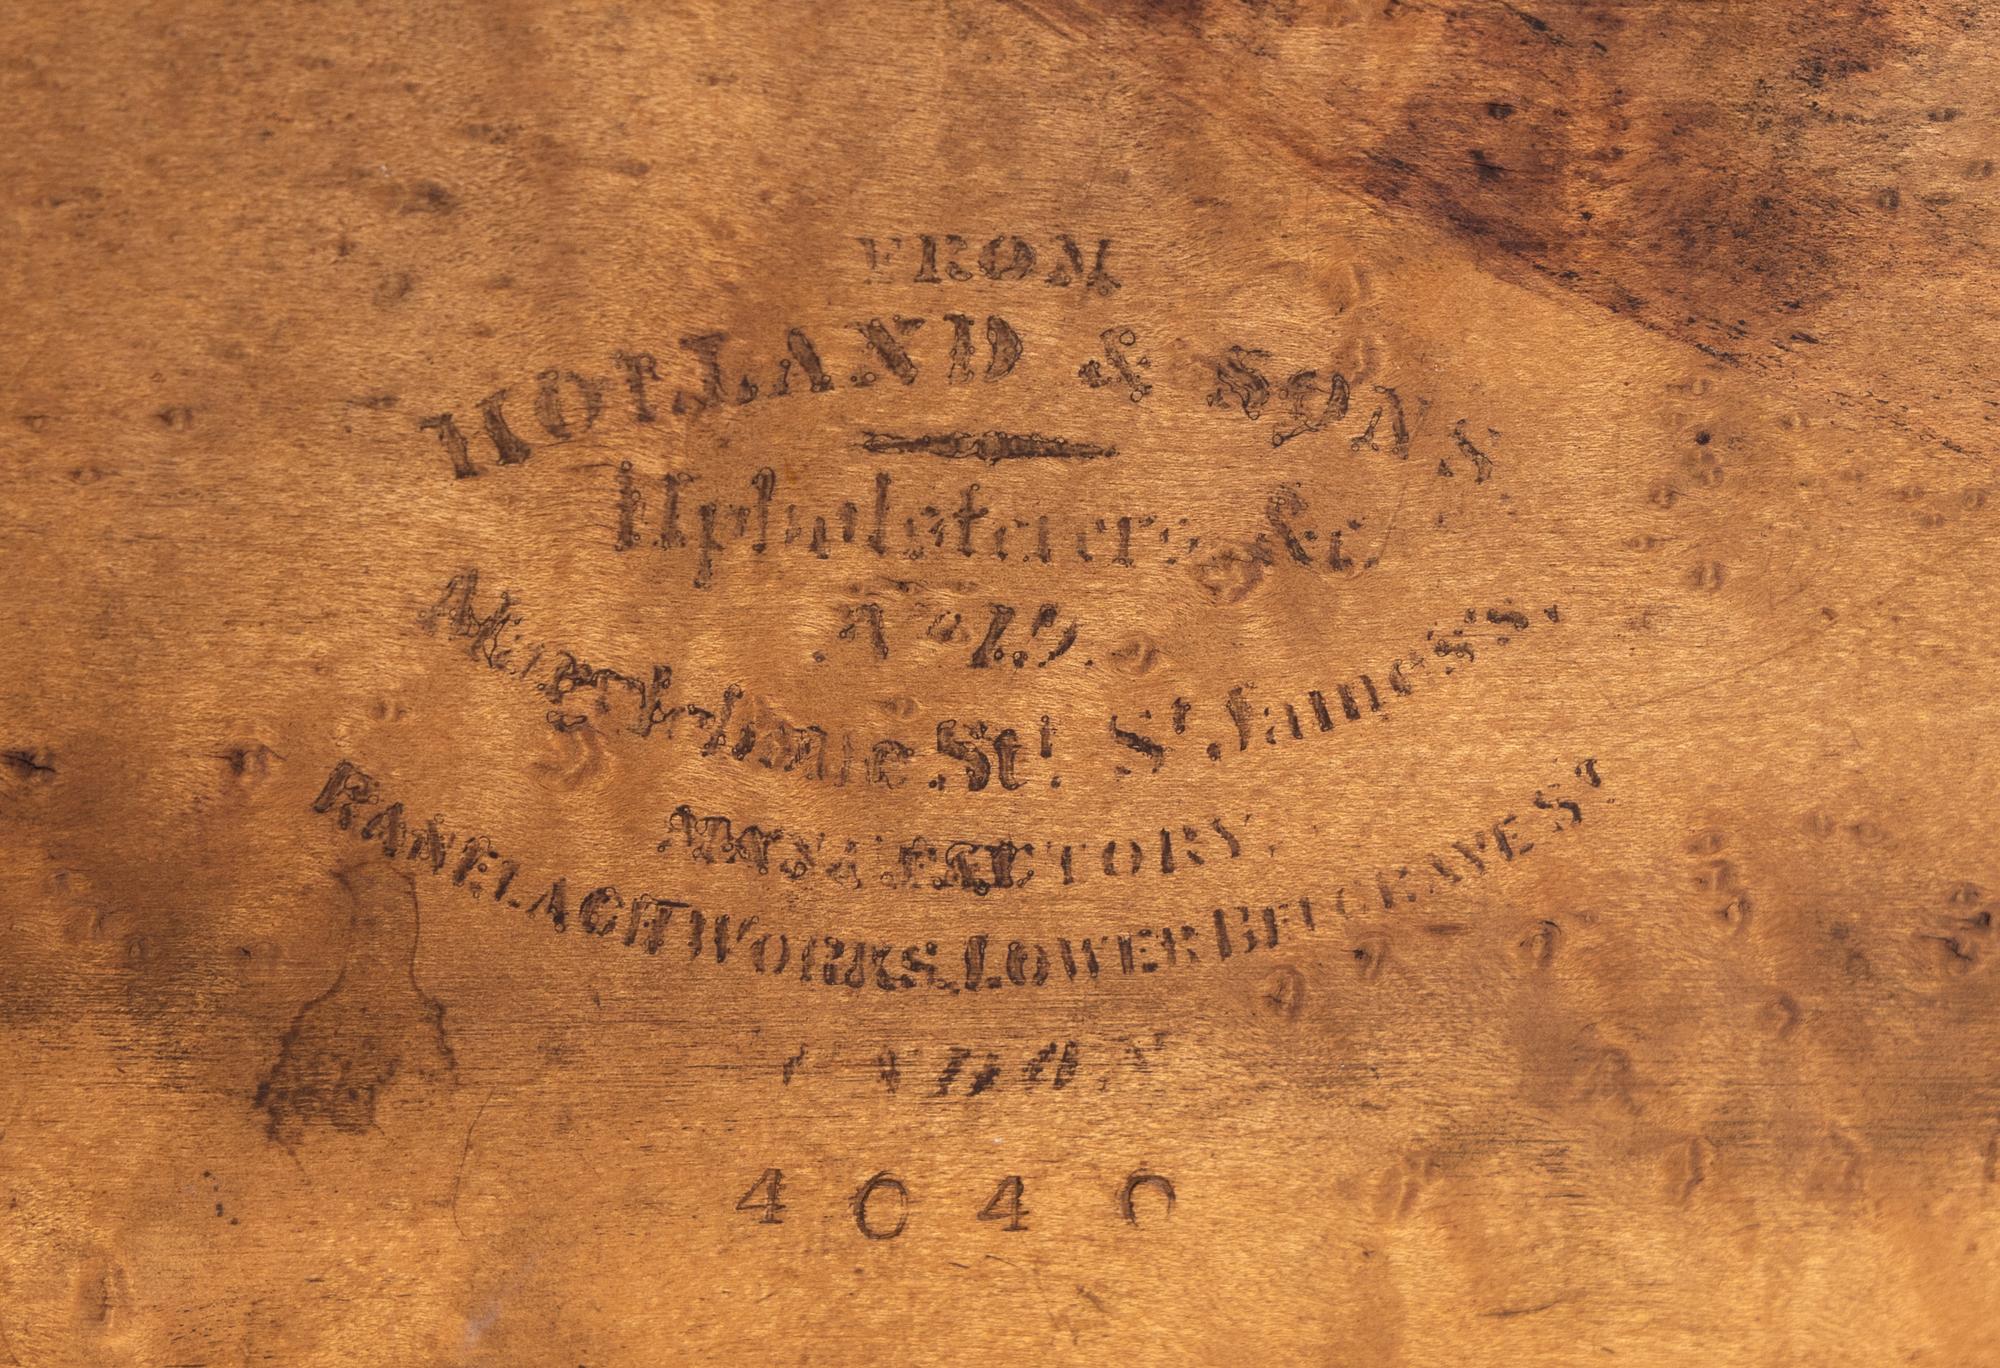 FROM
HOLLAND & SONS
Upholsterers &c
No 19.
Marylebone St! St James's.
MANUFACTORY.
RANELAGH WORKS, LOWER BELGRAVE St
LONDON
4040